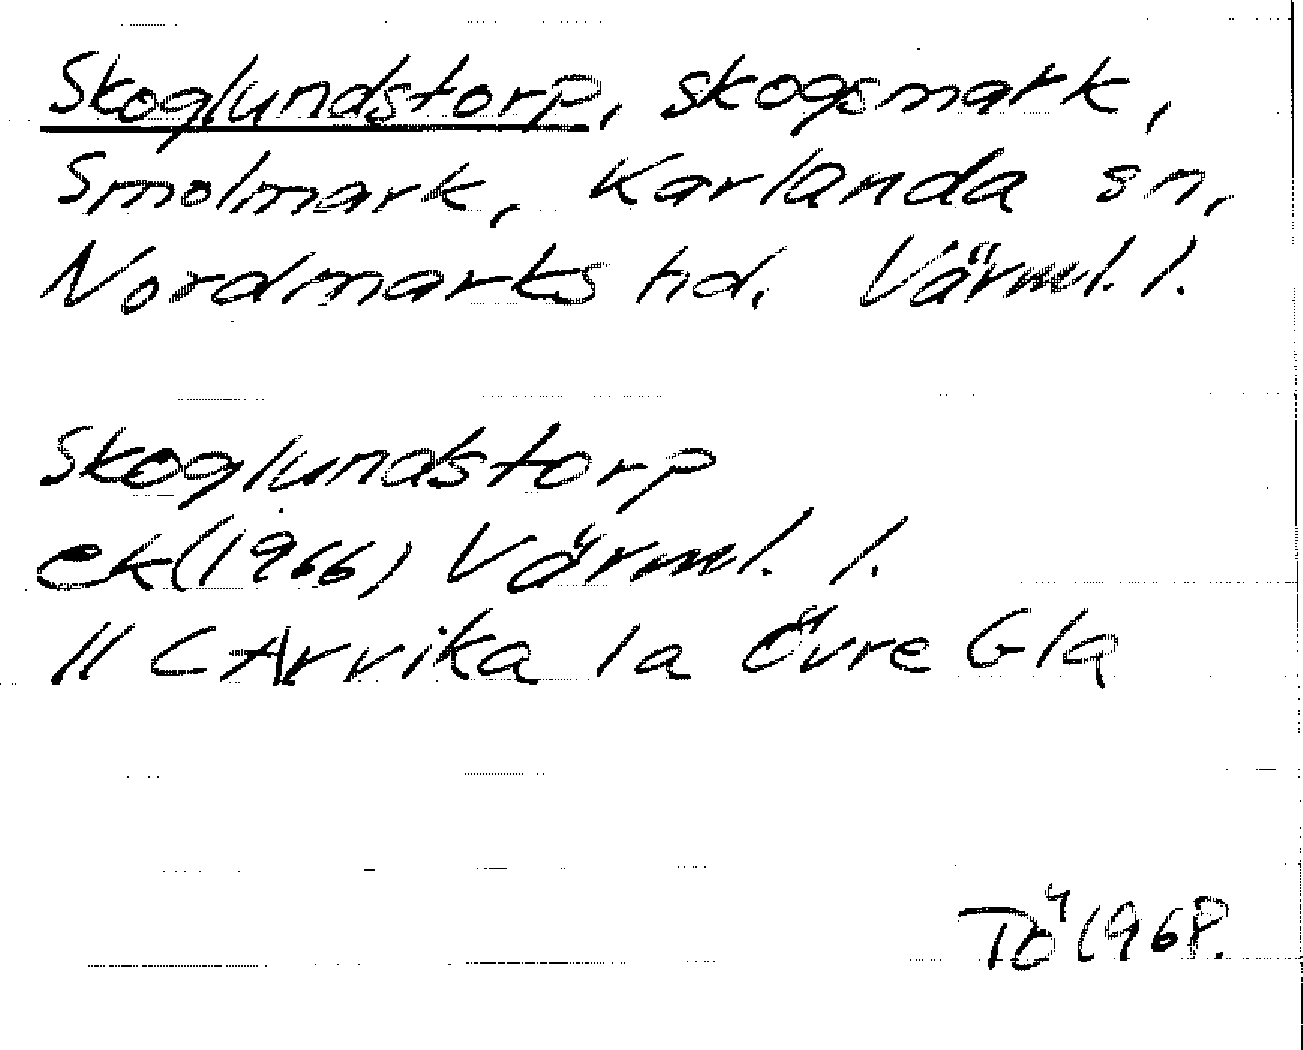 Skoglundstorp, skogsmark,
Smolmark, Karlanda sn,
Nordmarks hd. Värml. l.
Skoglundstorp
ek (1966) Värml. l.
11 C Arvika 1a Övre Gla
TÖ 1968.